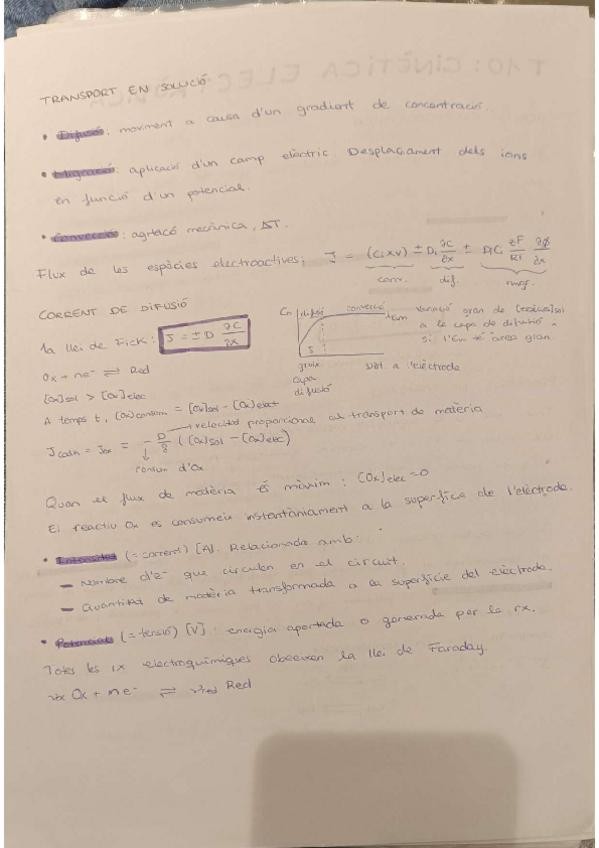 TRANSPORT EN SOLUCIÓ
• Difusió: moviment a causa d'un gradient de concentració.
• Migració: aplicació d'un camp elèctric. Desplaçament dels ions
en funció d'un potencial.
• Convecció: agitació mecànica, ΔT.
Flux de les espècies electroactives: J = (Ci×v) ± Di ∂C/∂x ± DiCi zF/RT ∂φ/∂x
conv. dif. migr.
CORRENT DE DIFUSIÓ
1a llei de Fick: J = ± D ∂C/∂x
Cn difusió convecció
variació gran de
a la capa de difusió
si l'Em té àrea gran.
δ
gruix
capa
difusió
dist. a l'elèctrode
Ox + ne⁻ ⇌ Red
[Ox]sol > [Ox]elec
A temps t, [Ox]consum = [Ox]sol - [Ox]elect
velocitat proporcional al transport de matèria
Jcatn = Jox = - D/δ ([Ox]sol - [Ox]elec)
consum d'Ox
Quan el flux de matèria és màxim: [Ox]elec = 0
El reactiu Ox es consumeix instantàniament a la superfície de l'elèctrode.
• Intensitat (= corrent) [A]. Relacionada amb:
- Nombre d'e⁻ que circulen en el circuit.
- Quantitat de matèria transformada a la superfície del elèctrode.
• Potencial (= tensió) [V]: energia aportada o generada per la rx.
Totes les rx electroquímiques obeeixen la llei de Faraday.
νox Ox + ne⁻ ⇌ νred Red